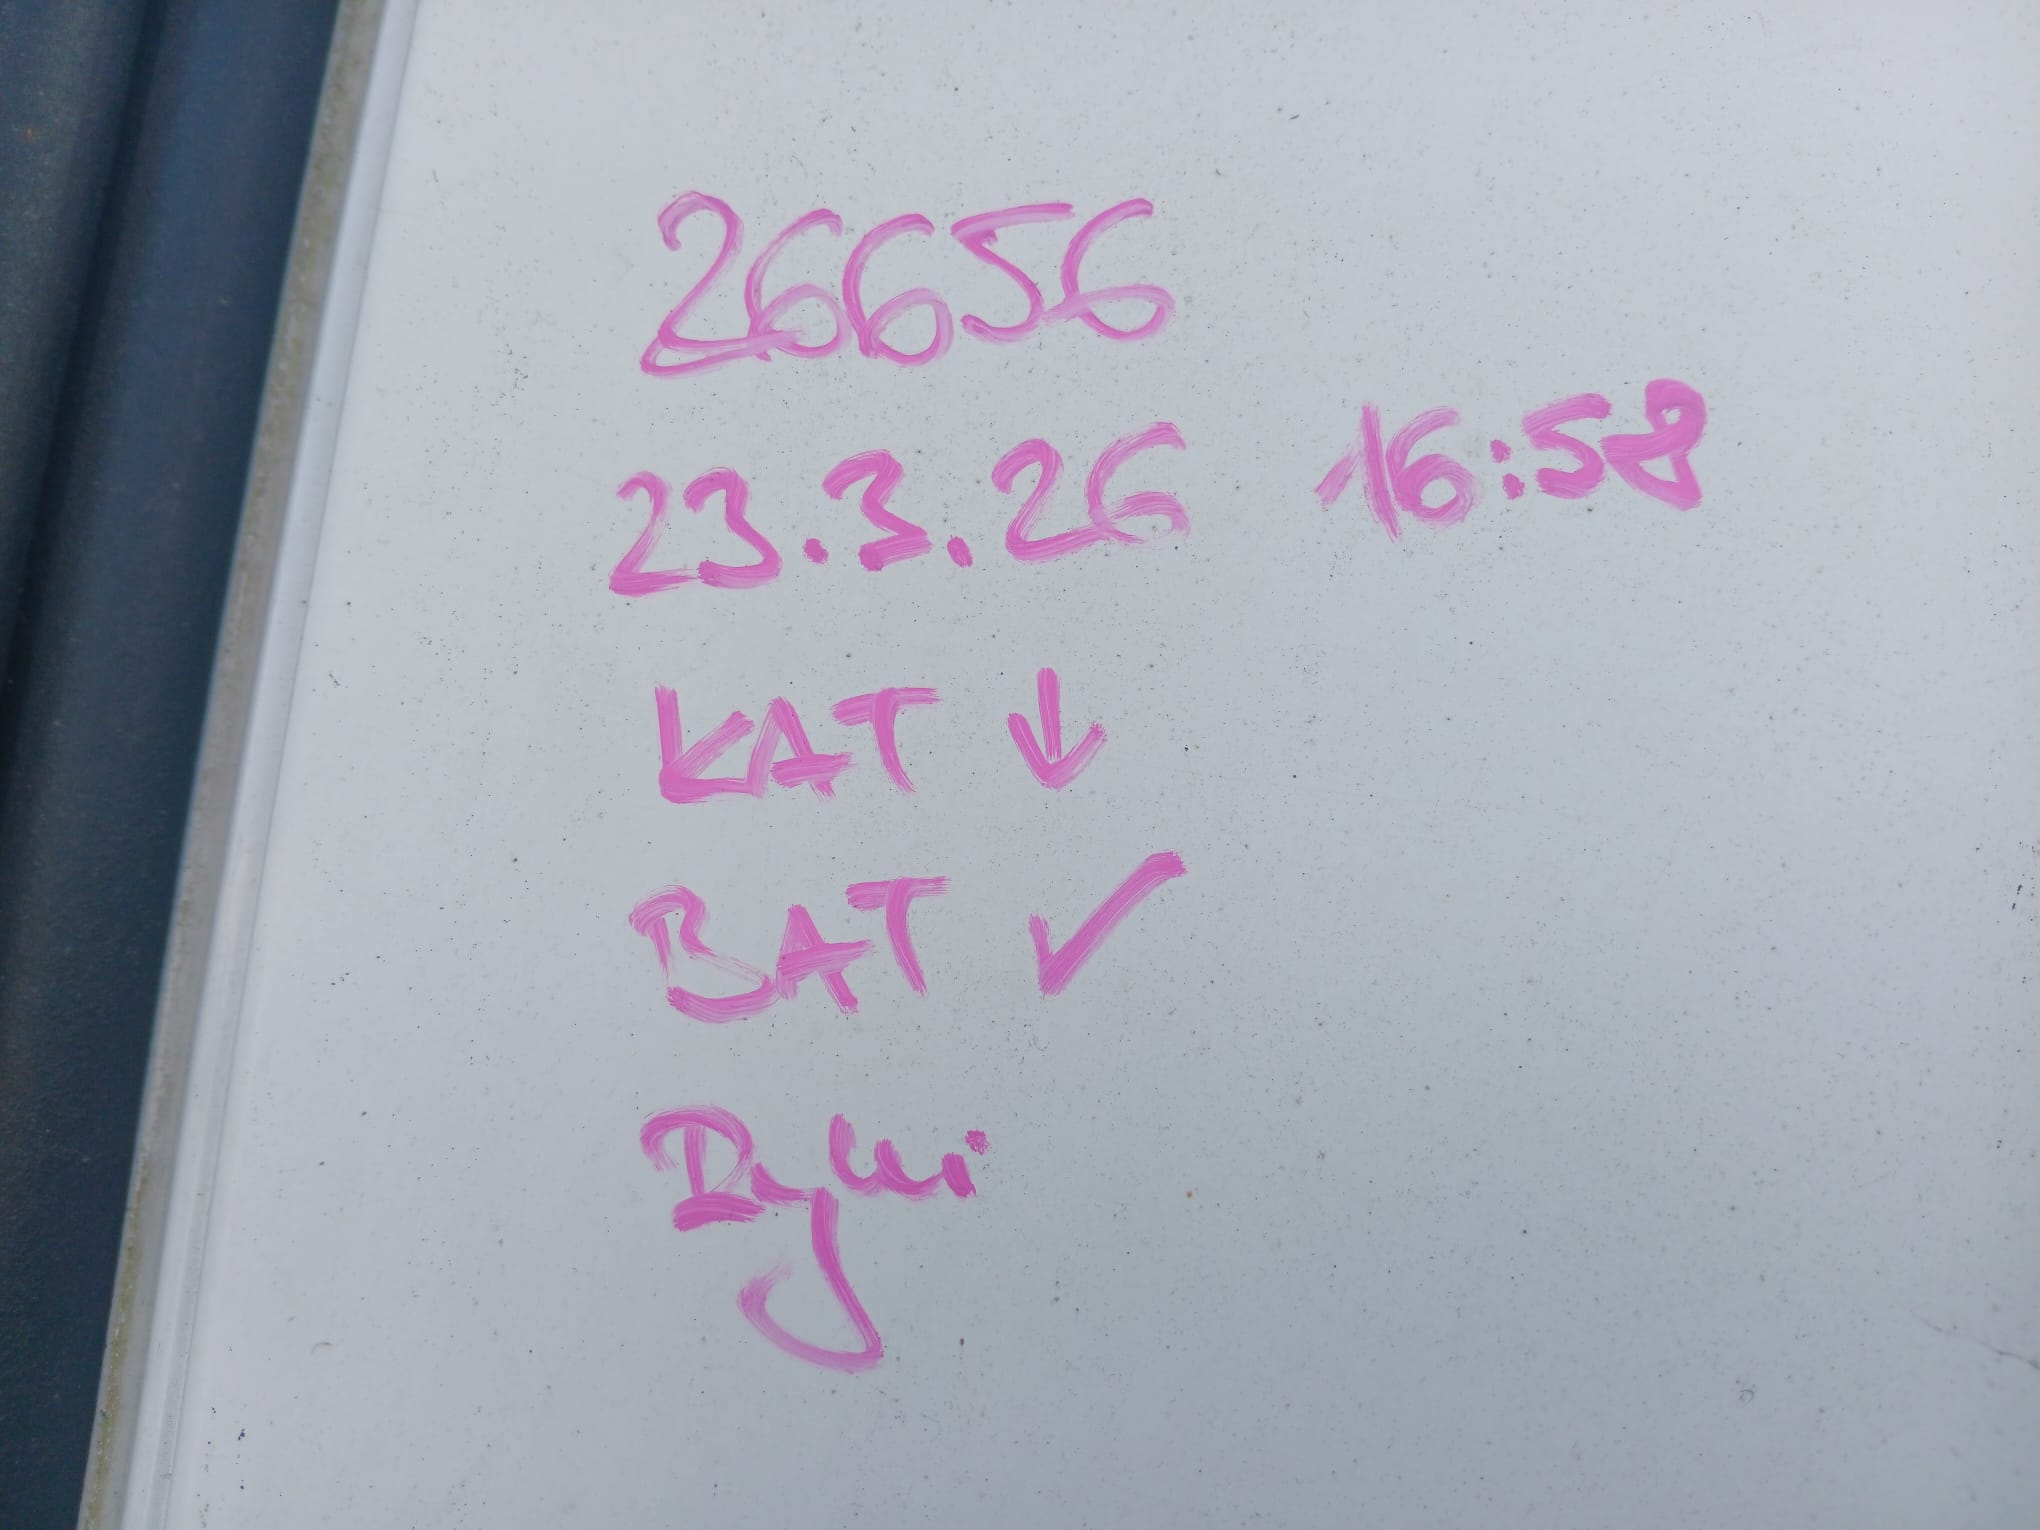 26656
23.3.26 16:58
KAT ↓
BAT ✓